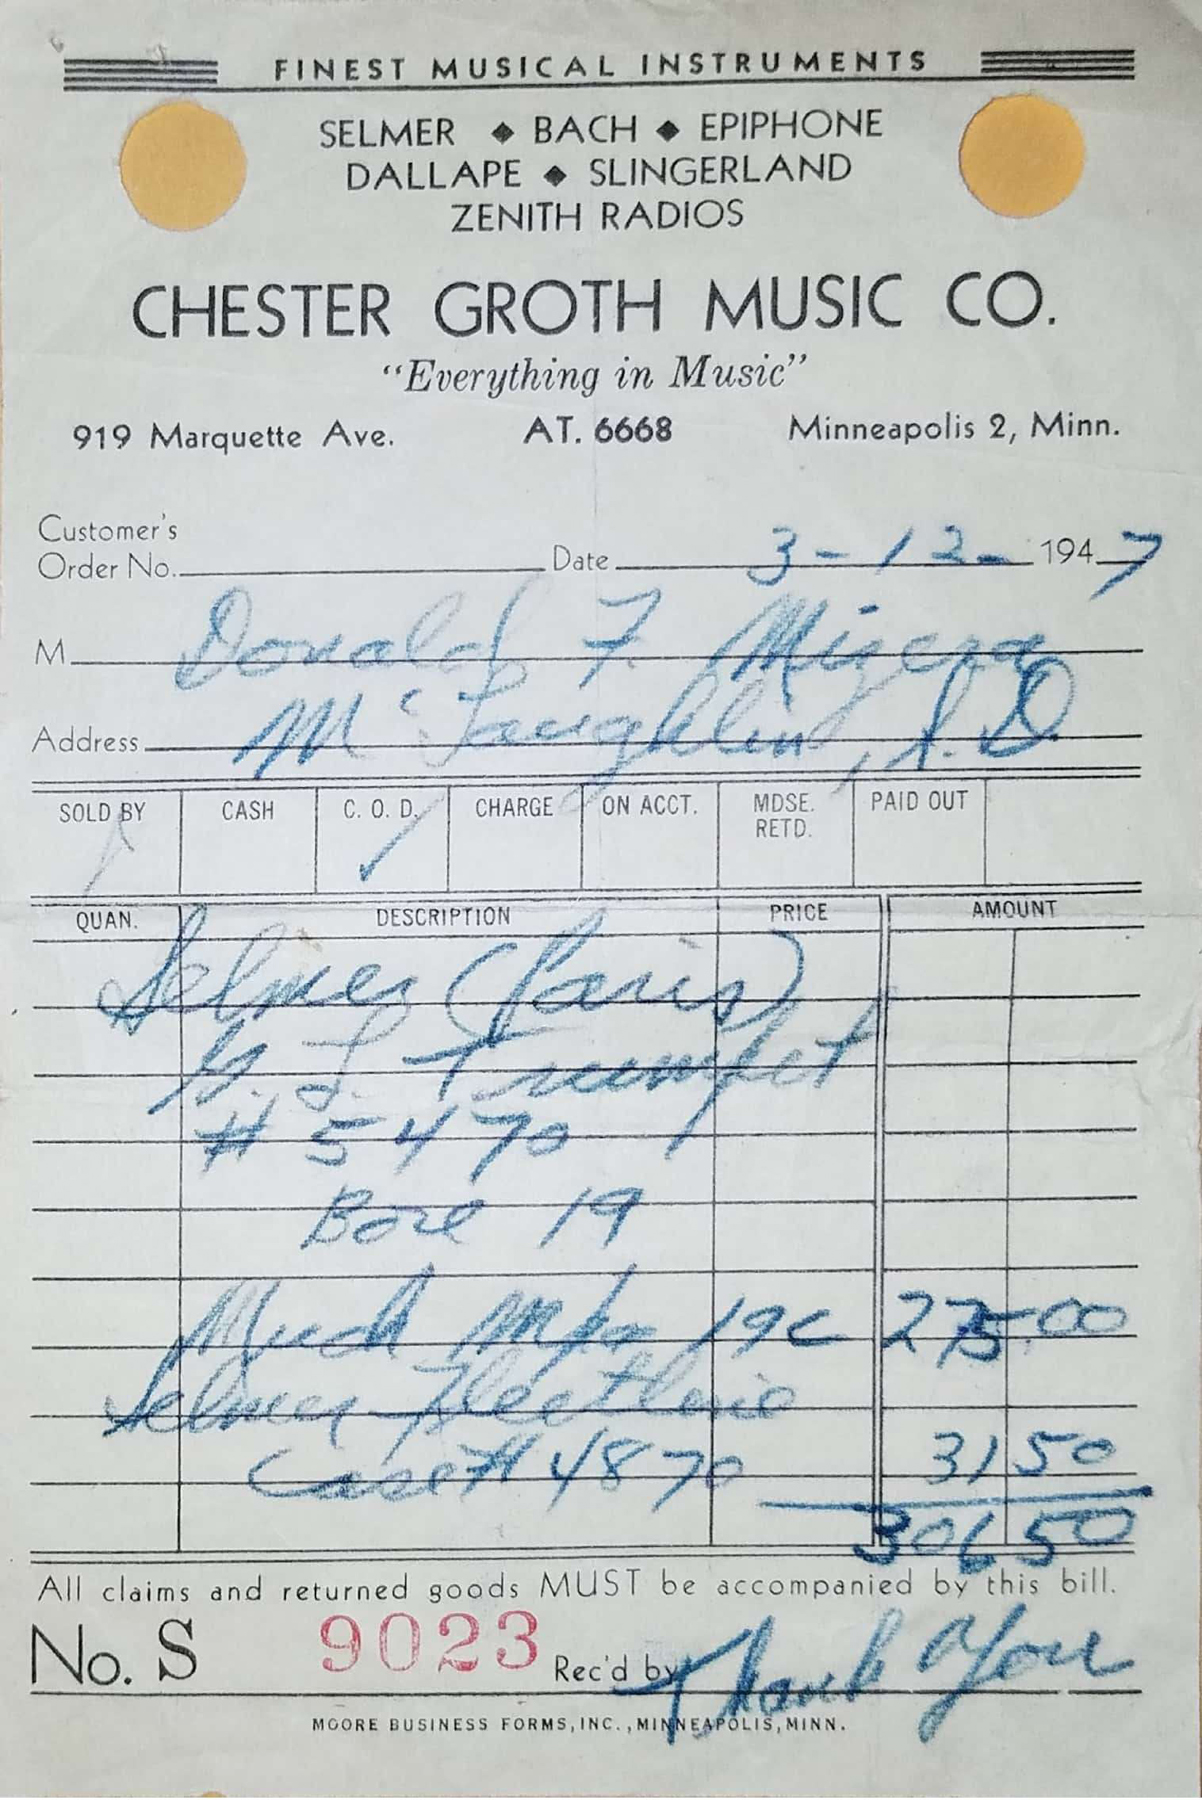 FINEST MUSICAL INSTRUMENTS
SELMER ◆ BACH ◆ EPIPHONE
DALLAPE ◆ SLINGERLAND
ZENITH RADIOS
CHESTER GROTH MUSIC CO.
"Everything in Music"
919 Marquette Ave. AT. 6668 Minneapolis 2, Minn.
Customer's
Order No. Date 3-12- 1947
M Donald F. Mizera
Address McLaughlin, S.D.
SOLD BY CASH C. O. D. CHARGE ON ACCT. MDSE. RETD. PAID OUT
✓
QUAN. DESCRIPTION PRICE AMOUNT
Selmer (Paris)
Trumpet
# 5470
Bore 19
19C 275.00
Selmer
Case # 4870 31 50
306 50
All claims and returned goods MUST be accompanied by this bill.
No. S 9023 Rec'd by Thank You
MOORE BUSINESS FORMS, INC., MINNEAPOLIS, MINN.